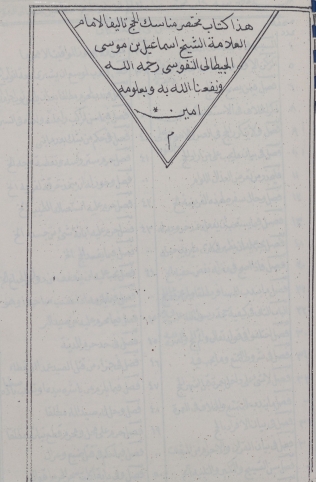 هذا كتاب مختصر مناسك الحج تاليف الامام
العلامة الشيخ اسماعيل بن موسى
الجيطالي النفوسي رحمه الله
ونفعنا الله به وبعلومه
امين
م